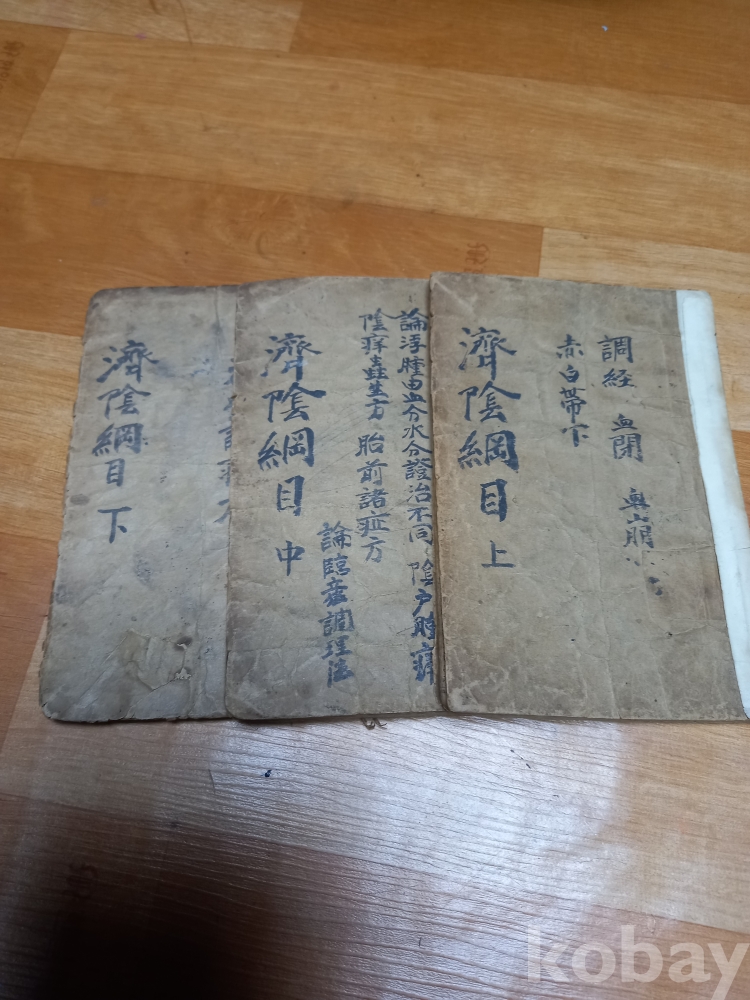 濟陰綱目 上
調経 血閉
赤白帶下
濟陰綱目 中
論浮腫由血分水分證治不同 陰戶腫痒
陰痒蟲生方 胎前諸症方
論臨産調理法
濟陰綱目 下
kobay